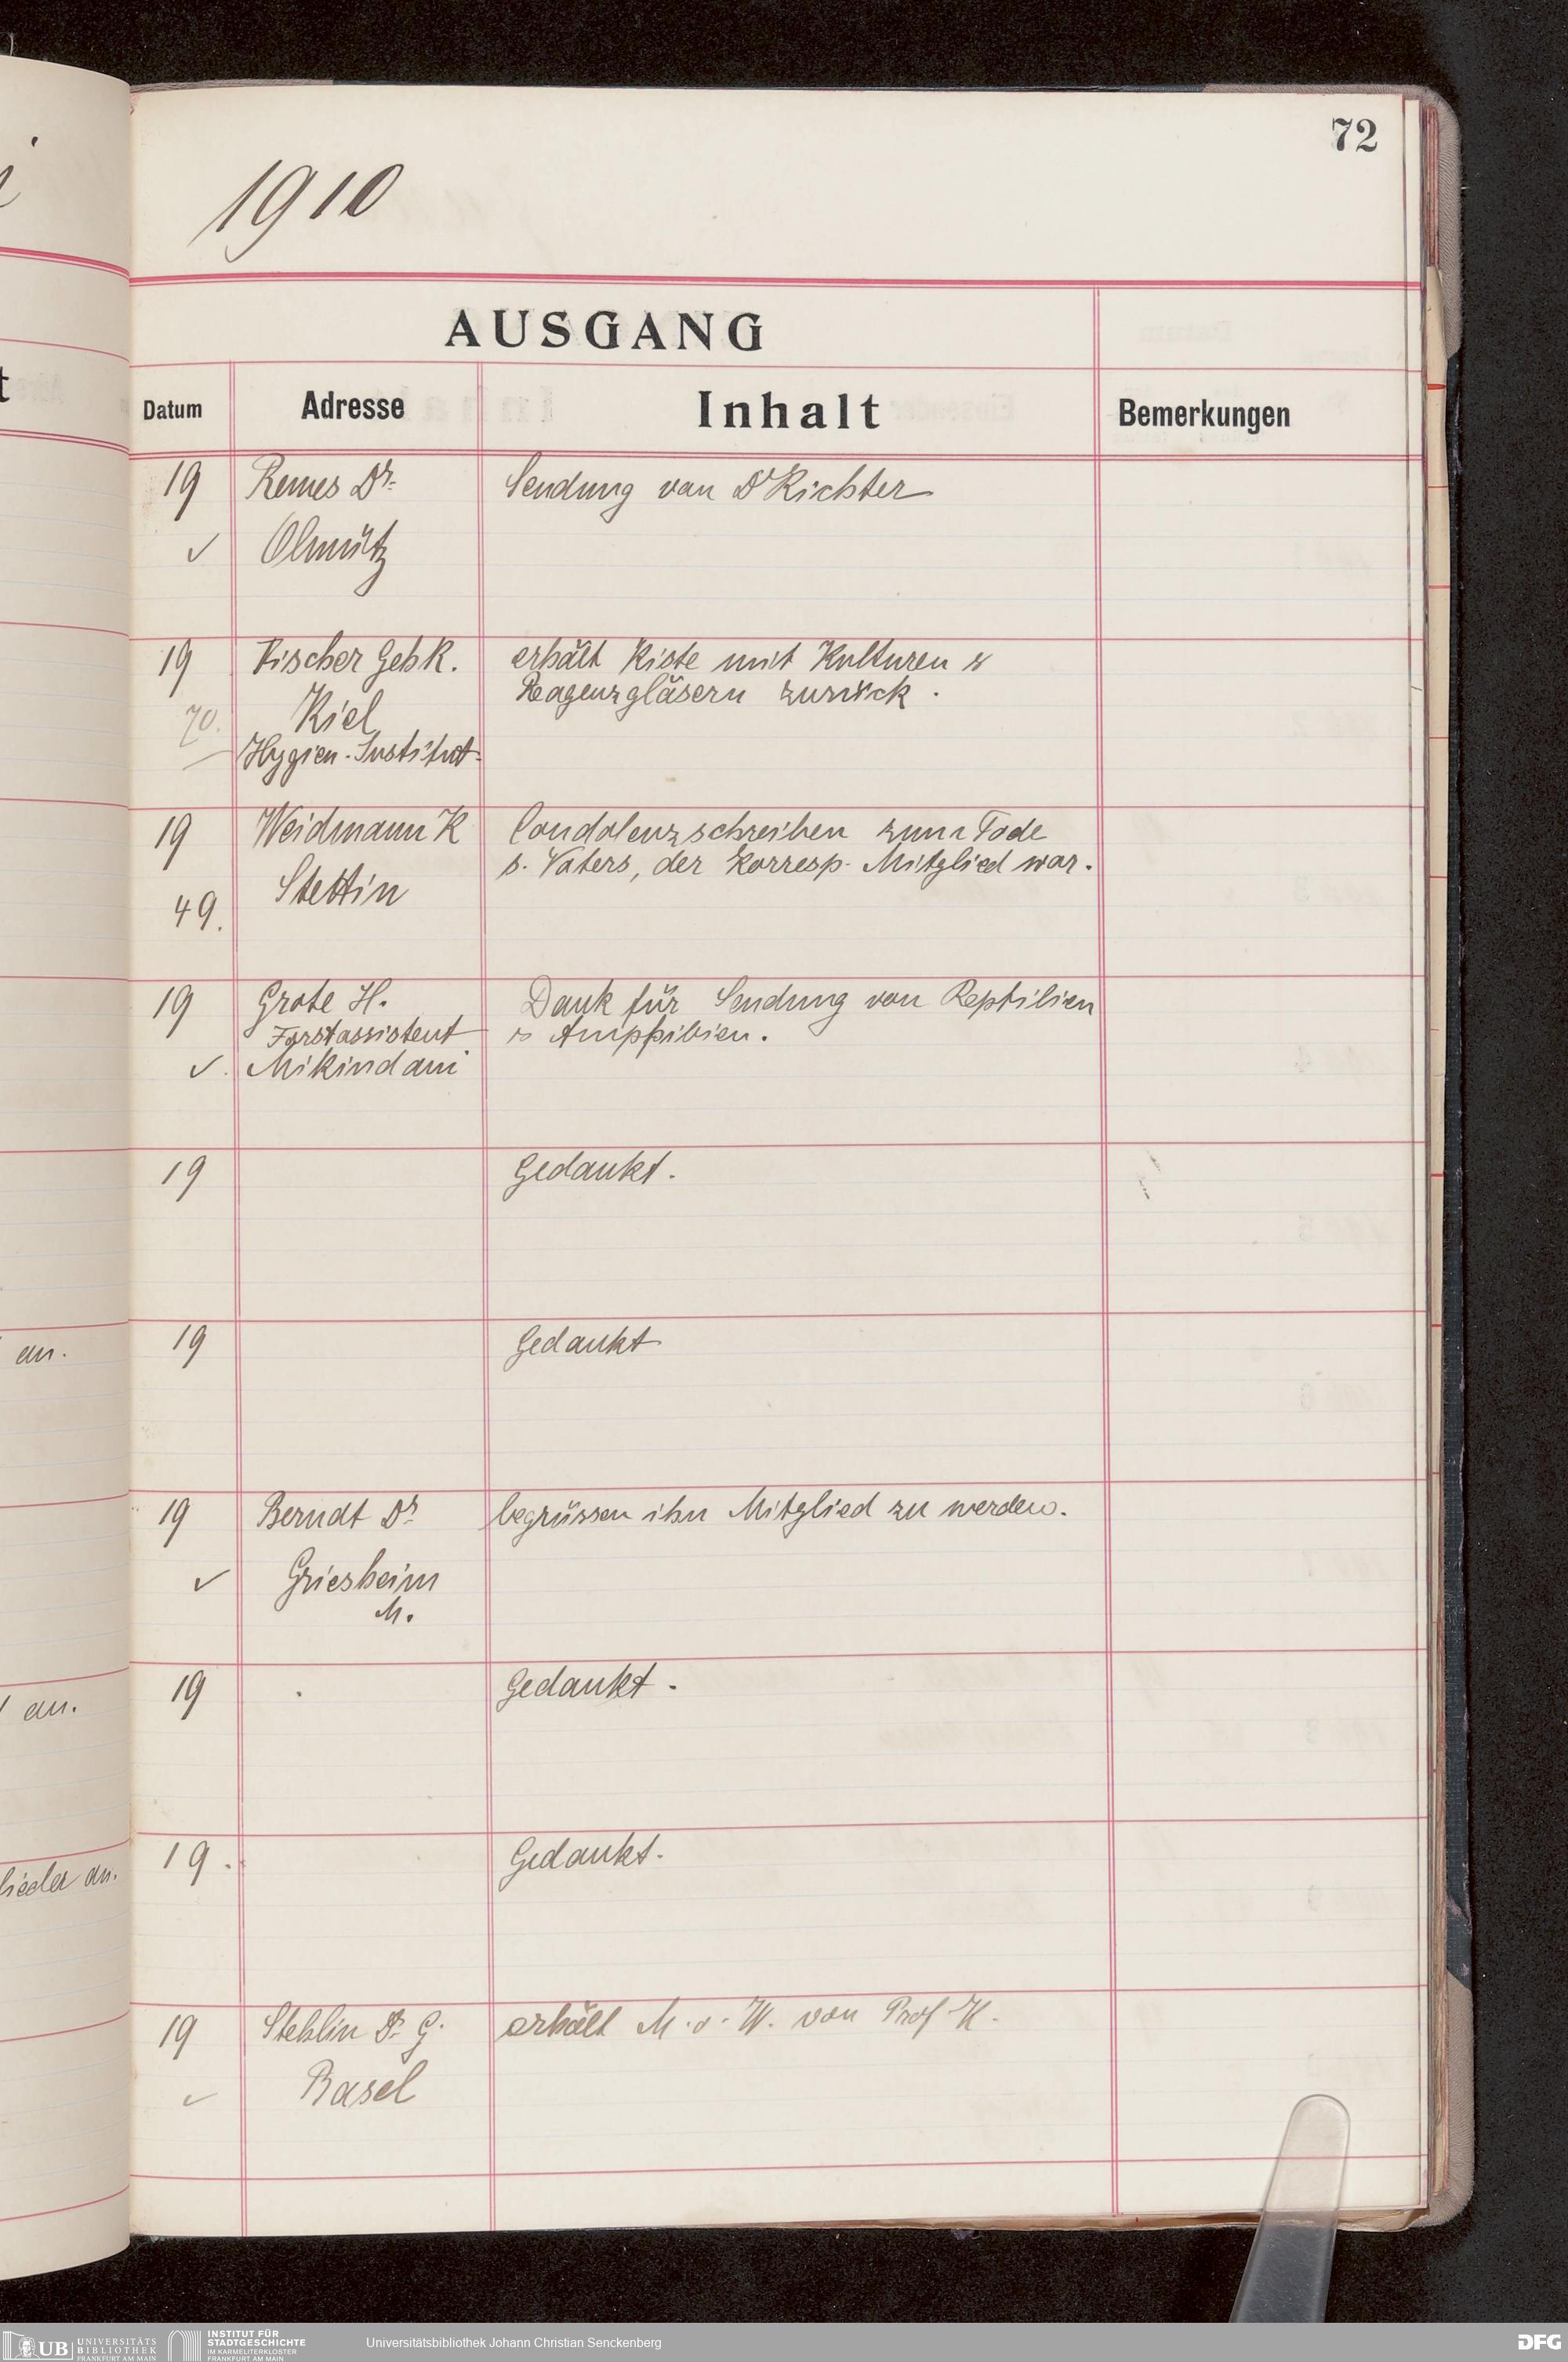 72
1910
AUSGANG
Datum Adresse Inhalt Bemerkungen
19 Remes Dr. Sendung von Dr Richter
✓ Olmütz
19 Fischer Geh R. erhält Kiste mit Kulturen &
Reagenzgläsern zurück.
70. Kiel
Hygien. Institut
19 Weidmann K Condolenzschreiben zum Tode
s. Vaters, der korresp. Mitglied war.
49. Stettin
19 Grote H. Dank für Sendung von Reptilien
Forstassistent & Amphibien.
✓. Mikindani
19 Gedankt.
an. 19 Gedankt
19 Berndt Dr. begrüssen ihn Mitglied zu werden.
✓ Griesheim
M.
an. 19 Gedankt.
lieder an. 19. Gedankt.
19 Stehlin Dr. G. erhält M. v. W. von Prof K.
✓ Basel
UB UNIVERSITÄTS
BIBLIOTHEK
FRANKFURT AM MAIN
INSTITUT FÜR
STADTGESCHICHTE
IM KARMELITERKLOSTER
FRANKFURT AM MAIN
Universitätsbibliothek Johann Christian Senckenberg
DFG